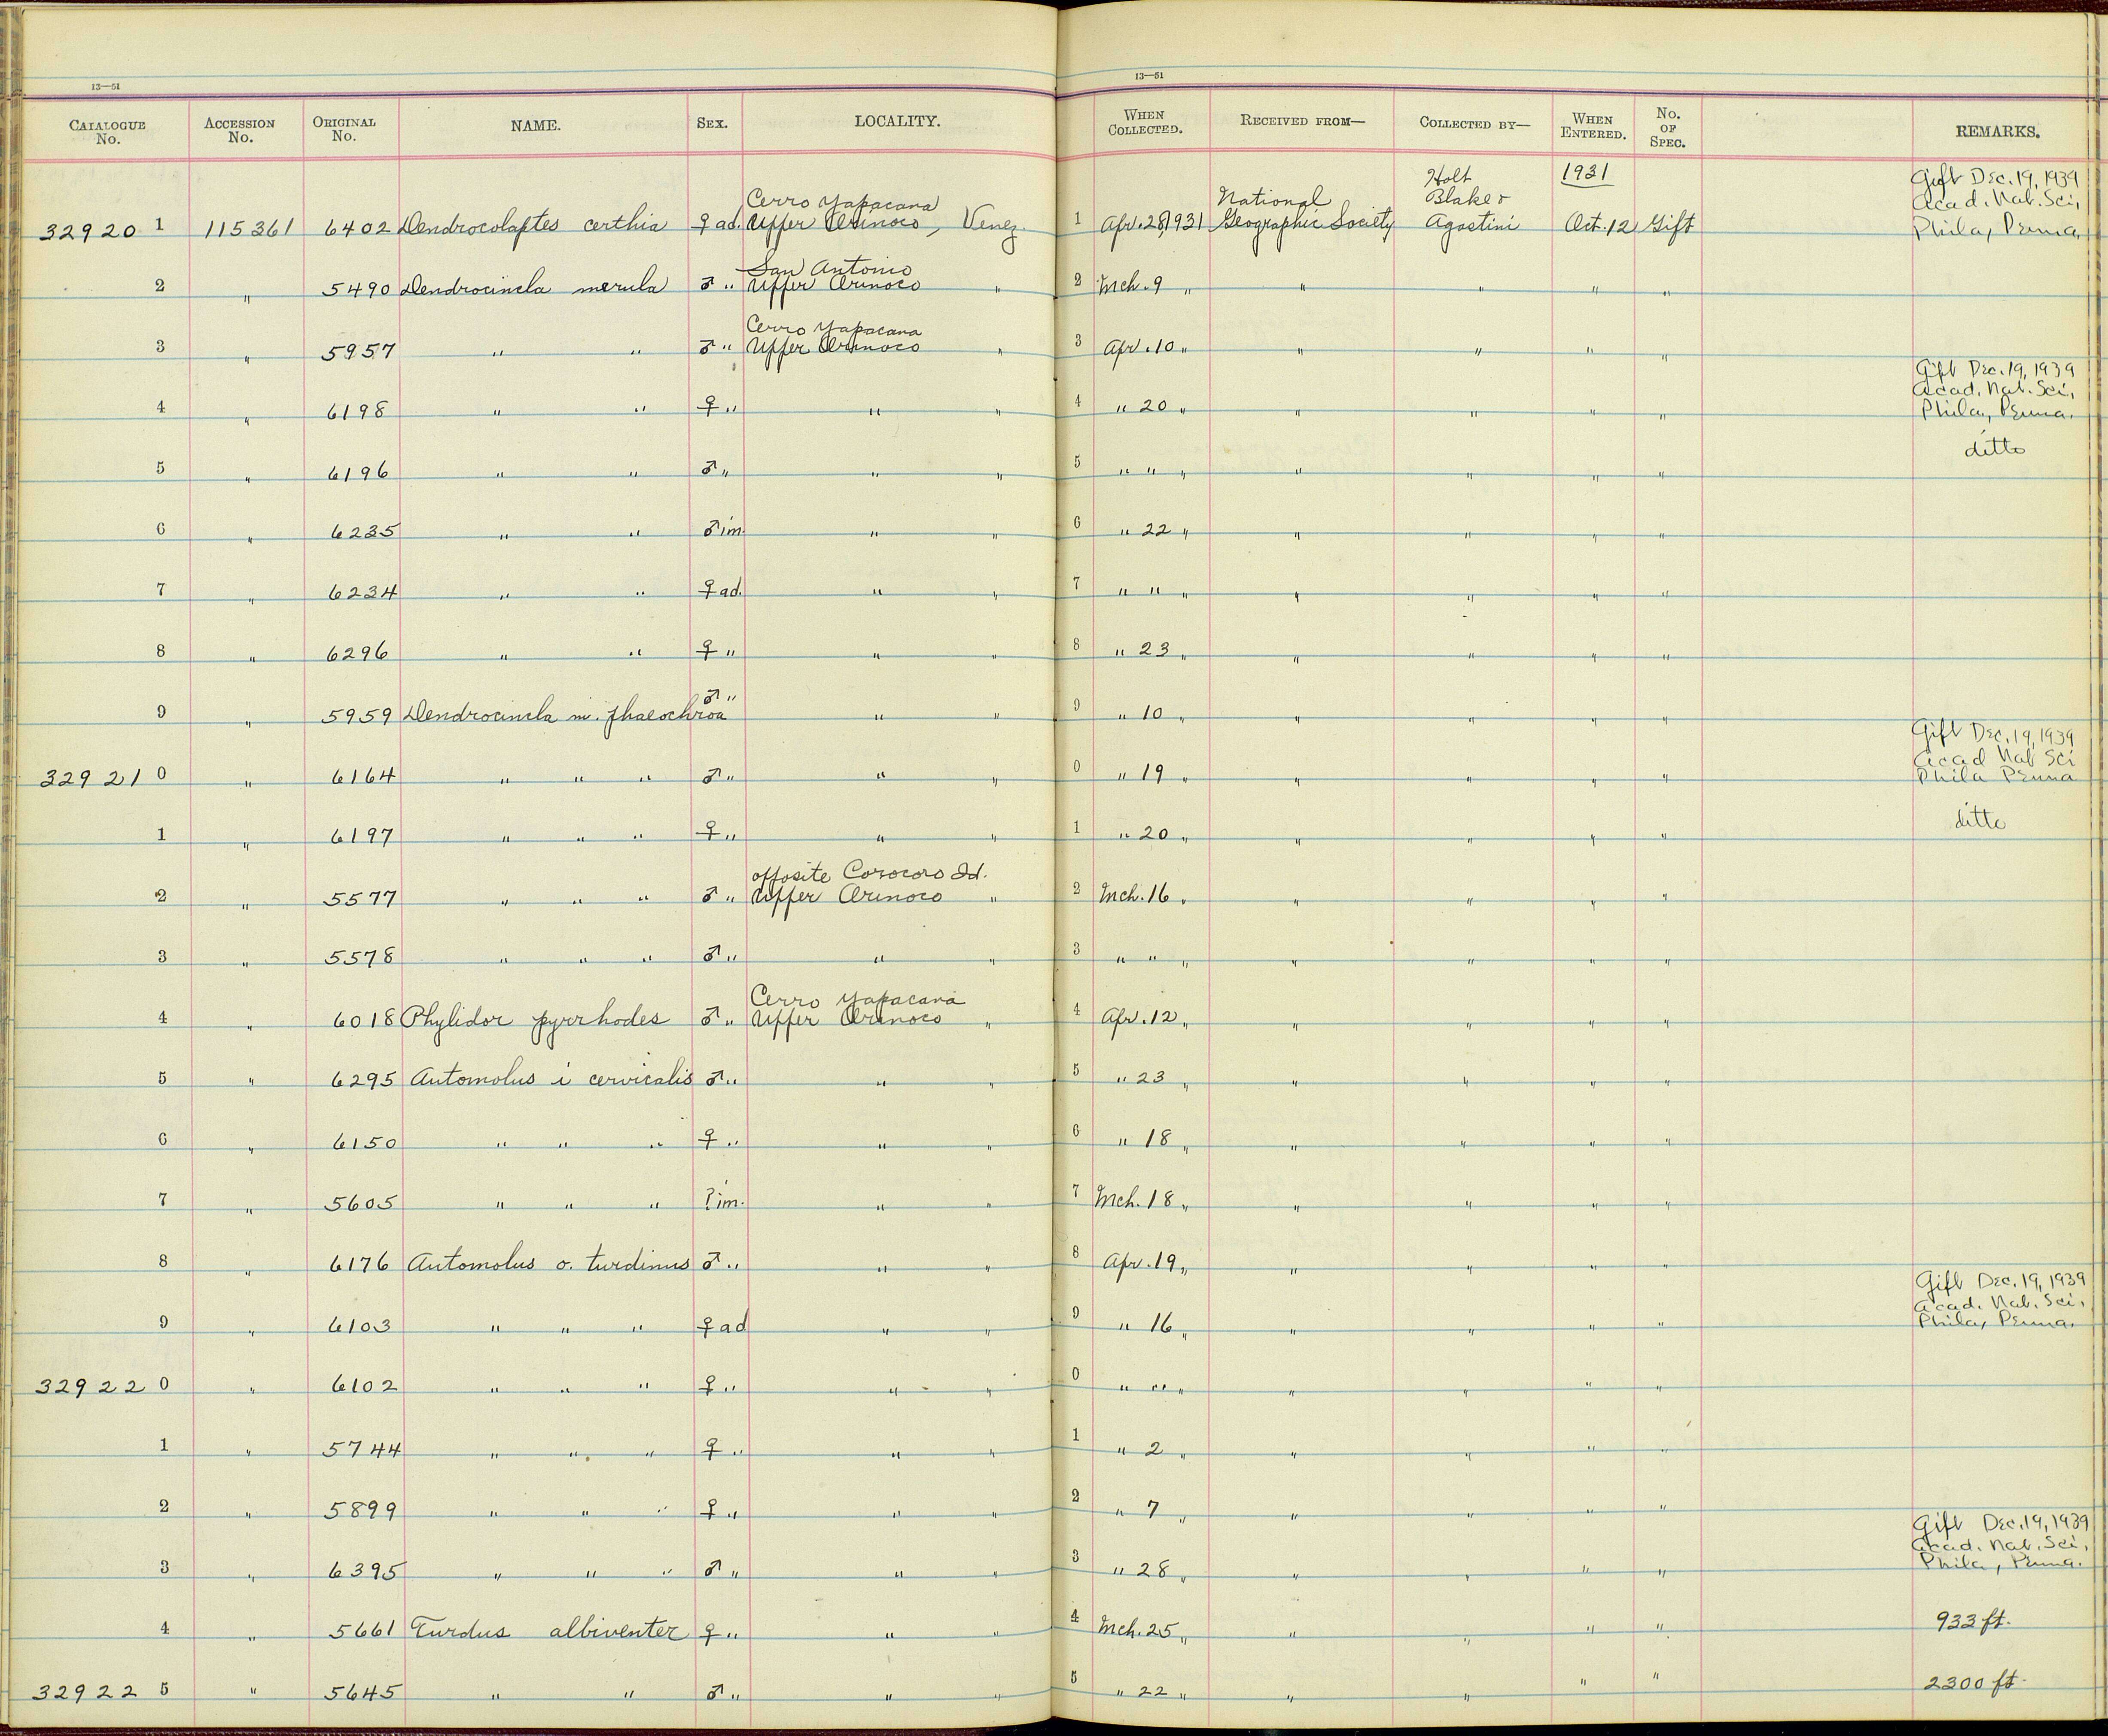 13—51
13—51
CATALOGUE No. ACCESSION No. ORIGINAL No. NAME. SEX. LOCALITY. WHEN COLLECTED. RECEIVED FROM— COLLECTED BY— WHEN ENTERED. No. OF SPEC. REMARKS.
Cerro Yapacana National Holt Blake & 1931 Gift Dec. 19, 1939 Acad. Nat. Sci,
32920 1 115361 6402 Dendrocolaptes certhia ♀ ad. Upper Orinoco, Venez. 1 Apr. 28, 1931 Geographic Society Agostini Oct. 12 Gift Phila, Penna,
San Antonio
2 " 5490 Dendrocincla merula ♂ " Upper Orinoco " 2 Mch. 9 " " " " "
Cerro Yapacana
3 " 5957 " " ♂ " Upper Orinoco " 3 Apr. 10 " " " " "
Gift Dec. 19, 1939
Acad. Nat. Sci,
4 " 6198 " " ♀ " " " 4 " 20 " " " " " Phila, Penna.
5 " 6196 " " ♂ " " " 5 " " " " " " " ditto
6 " 6235 " " ♂ im. " " 6 " 22 " " " " "
7 " 6234 " " ♀ ad. " " 7 " " " " " " "
8 " 6296 " " ♀ " " " 8 " 23 " " " " "
9 " 5959 Dendrocincla m. phaeochroa ♂ " " " 9 " 10 " " " " "
Gift Dec, 19, 1939
Acad Nat Sci
32921 0 " 6164 " " " ♂ " " " 0 " 19 " " " " " Phila Penna
1 " 6197 " " " ♀ " " " 1 " 20 " " " " " ditto
opposite Corocoro Id.
2 " 5577 " " " ♂ " Upper Orinoco " 2 Mch. 16 " " " " "
3 " 5578 " " " ♂ " " " 3 " " " " " " "
Cerro Yapacana
4 " 6018 Phylidor pyrrhodes ♂ " Upper Orinoco " 4 Apr. 12 " " " " "
5 " 6295 Automolus i cervicalis ♂ " " " 5 " 23 " " " " "
6 " 6150 " " " ♀ " " " 6 " 18 " " " " "
7 " 5605 " " " ? im. " " 7 Mch. 18 " " " " "
8 " 6176 Automolus o. turdinus ♂ " " " 8 Apr. 19 " " " " "
Gift Dec. 19, 1939
Acad. Nat. Sci,
9 " 6103 " " " ♀ ad " " 9 " 16 " " " " " Phila, Penna.
32922 0 " 6102 " " " ♀ " " " 0 " " " " " " "
1 " 5744 " " " ♀ " " " 1 " 2 " " " " "
2 " 5899 " " " ♀ " " " 2 " 7 " " " " "
Gift Dec. 19, 1939
Acad. Nat. Sci,
3 " 6395 " " " ♂ " " " 3 " 28 " " " " " Phila, Penna.
4 " 5661 Turdus albiventer ♀ " " " 4 Mch. 25 " " " " " 933 ft.
32922 5 " 5645 " " ♂ " " " 5 " 22 " " " " " 2300 ft.